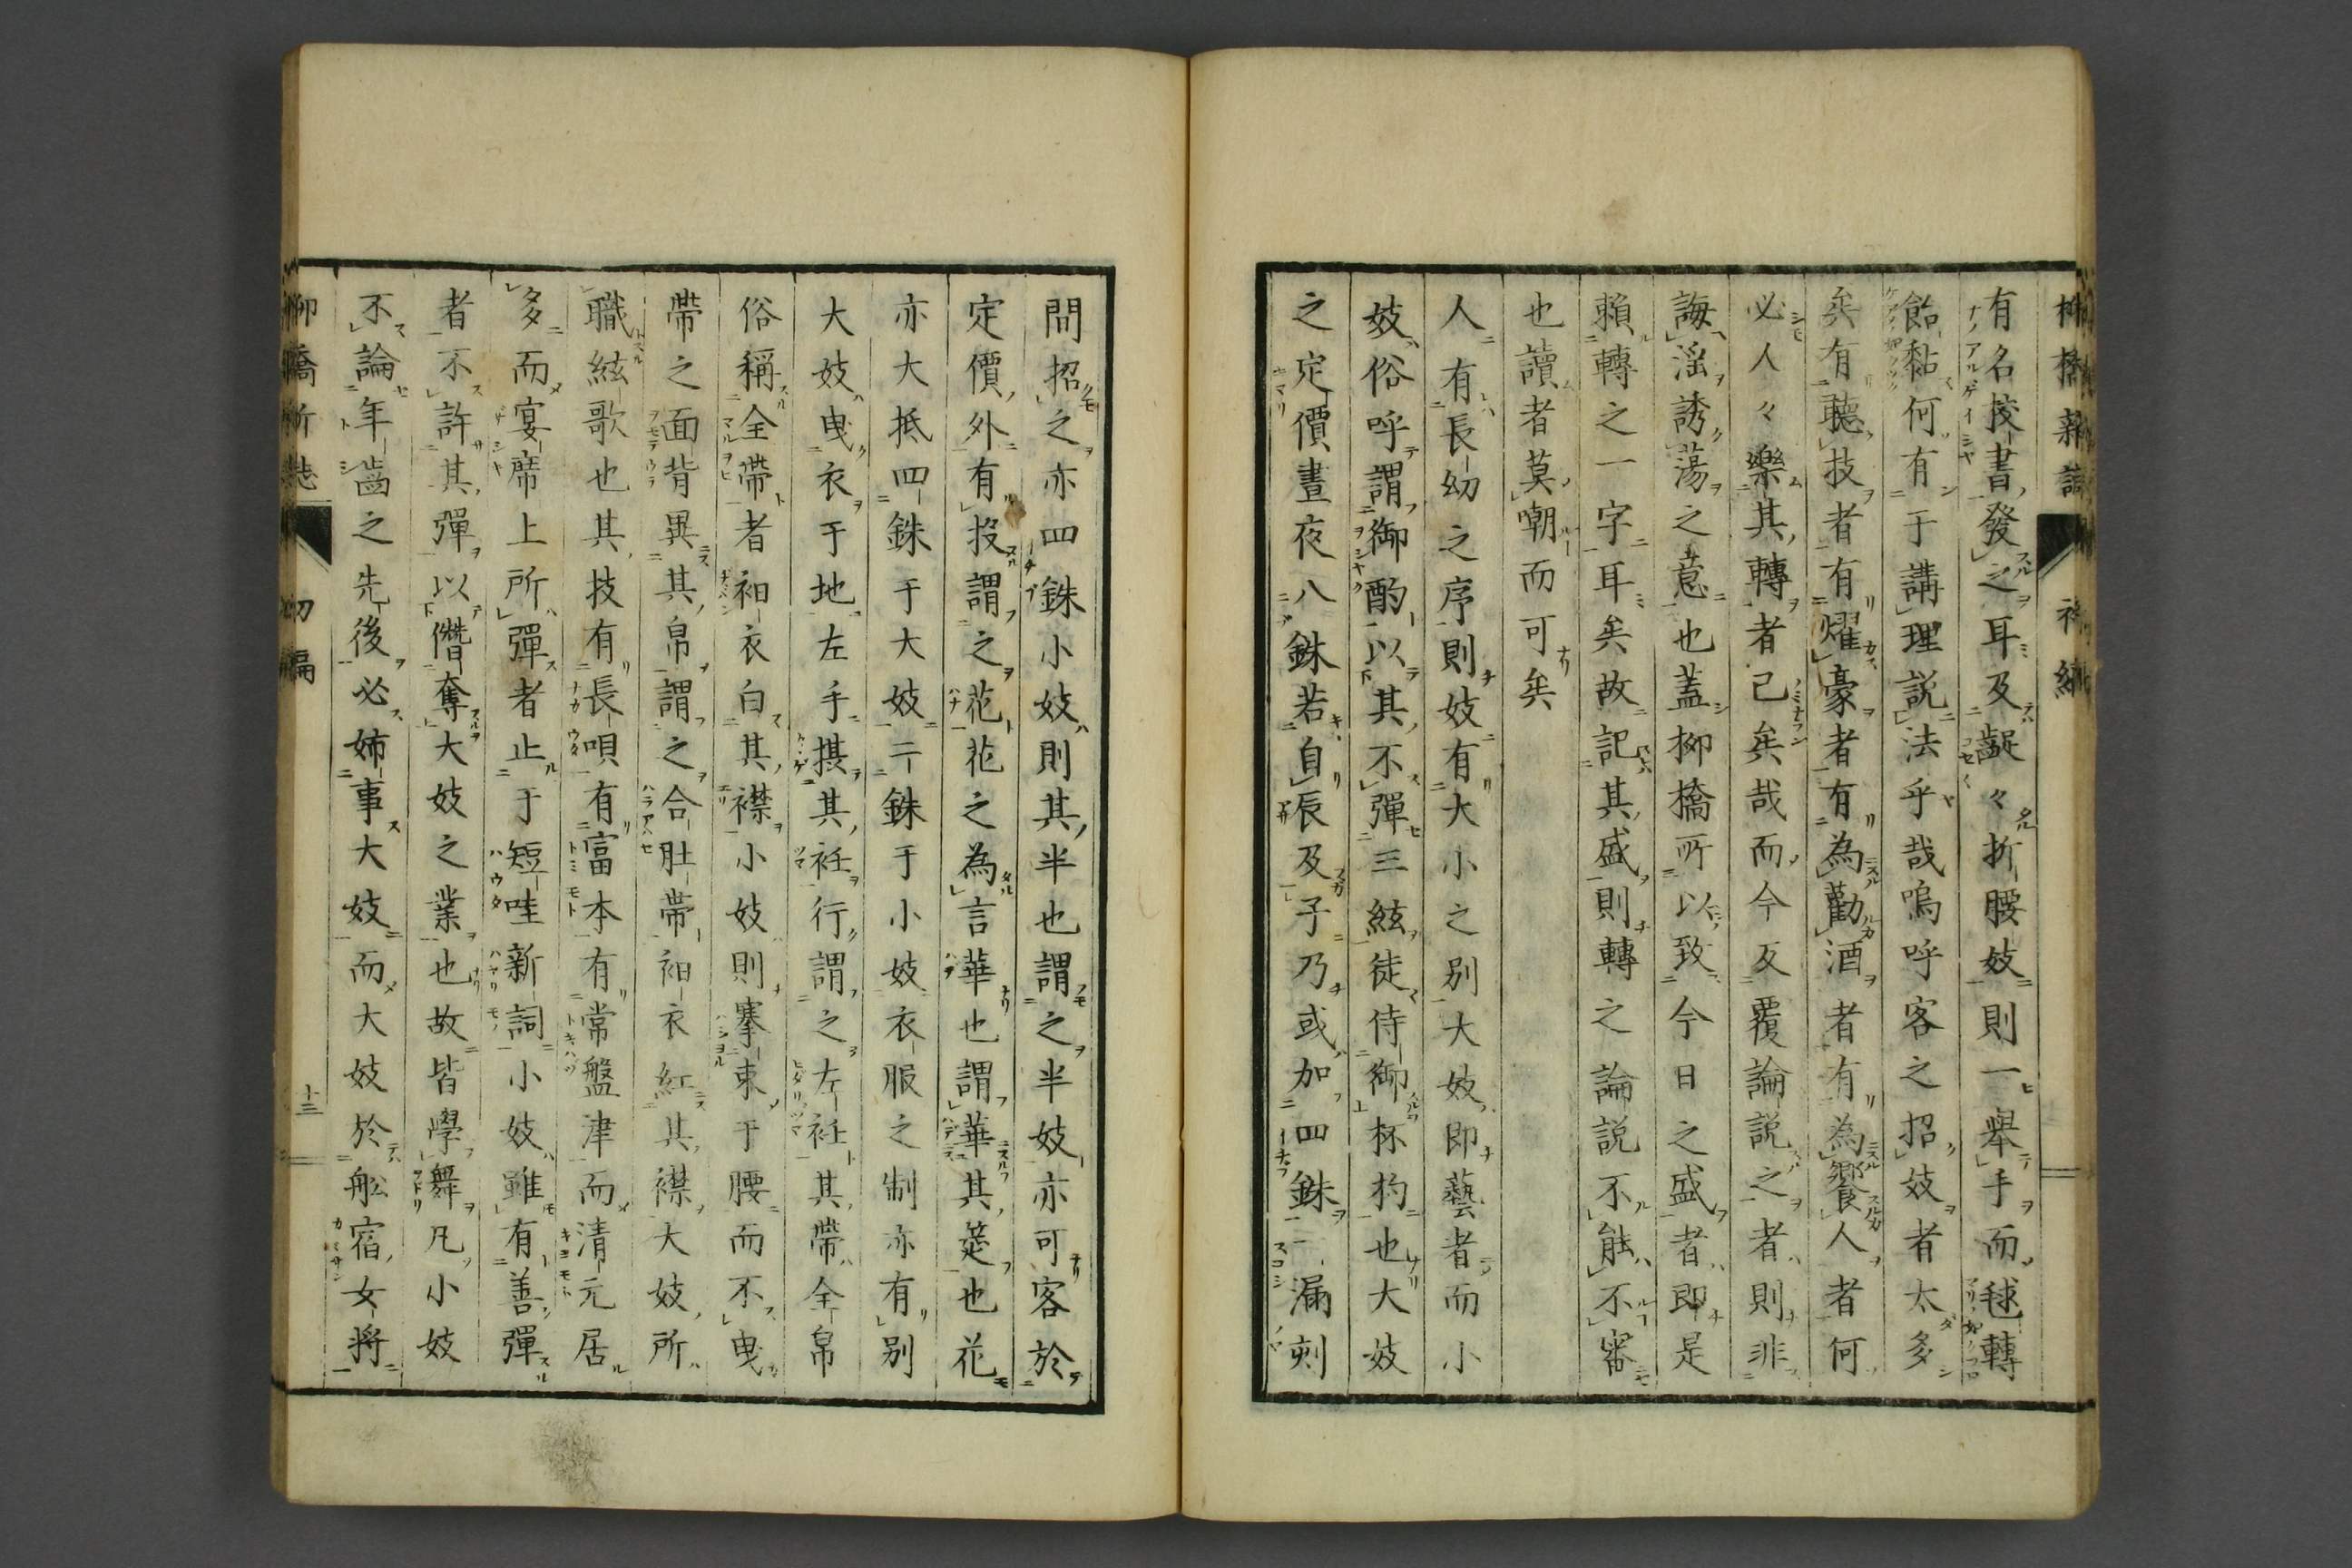 柳橋新誌
初編
有名挍書發之耳及齪々折腰妓則一舉手而毬轉
飴黏何有于講理説法乎哉嗚呼客之招妓者太多
矣有聽技者有燿豪者有為勸酒者有為饗人者何
必人々樂其轉者已矣哉而今反覆論説之者則非
誨淫誘蕩之意也蓋柳橋所以致今日之盛者即是
賴轉之一字耳矣故記其盛則轉之論説不能不審
也讀者莫嘲而可矣
人有長幼之序則妓有大小之別大妓即藝者而小
妓俗呼謂御酌以其不彈三絃徒侍御杯杓也大妓
之定價晝夜八銖若自辰及子乃或加四銖漏刻
問招之亦四銖小妓則其半也謂之半妓亦可客於
定價外有投謂之花花之為言華也謂華其筵也花
亦大抵四銖于大妓二銖于小妓衣服之制亦有別
大妓曳衣于地左手摂其衽行謂之左衽其帶全帛
俗稱全帶者衵衣白其襟小妓則搴束于腰而不曳
帶之面背異其帛謂之合肚帶衵衣紅其襟大妓所
職絃歌也其技有長唄有富本有常盤津而清元居
多而宴席上所彈者止于短哇新詞小妓雖有善彈
者不許其彈以僭奪大妓之業也故皆學舞凡小妓
不論年齒之先後必姉事大妓而大妓於舩宿女将
柳橋新誌
初編
十三